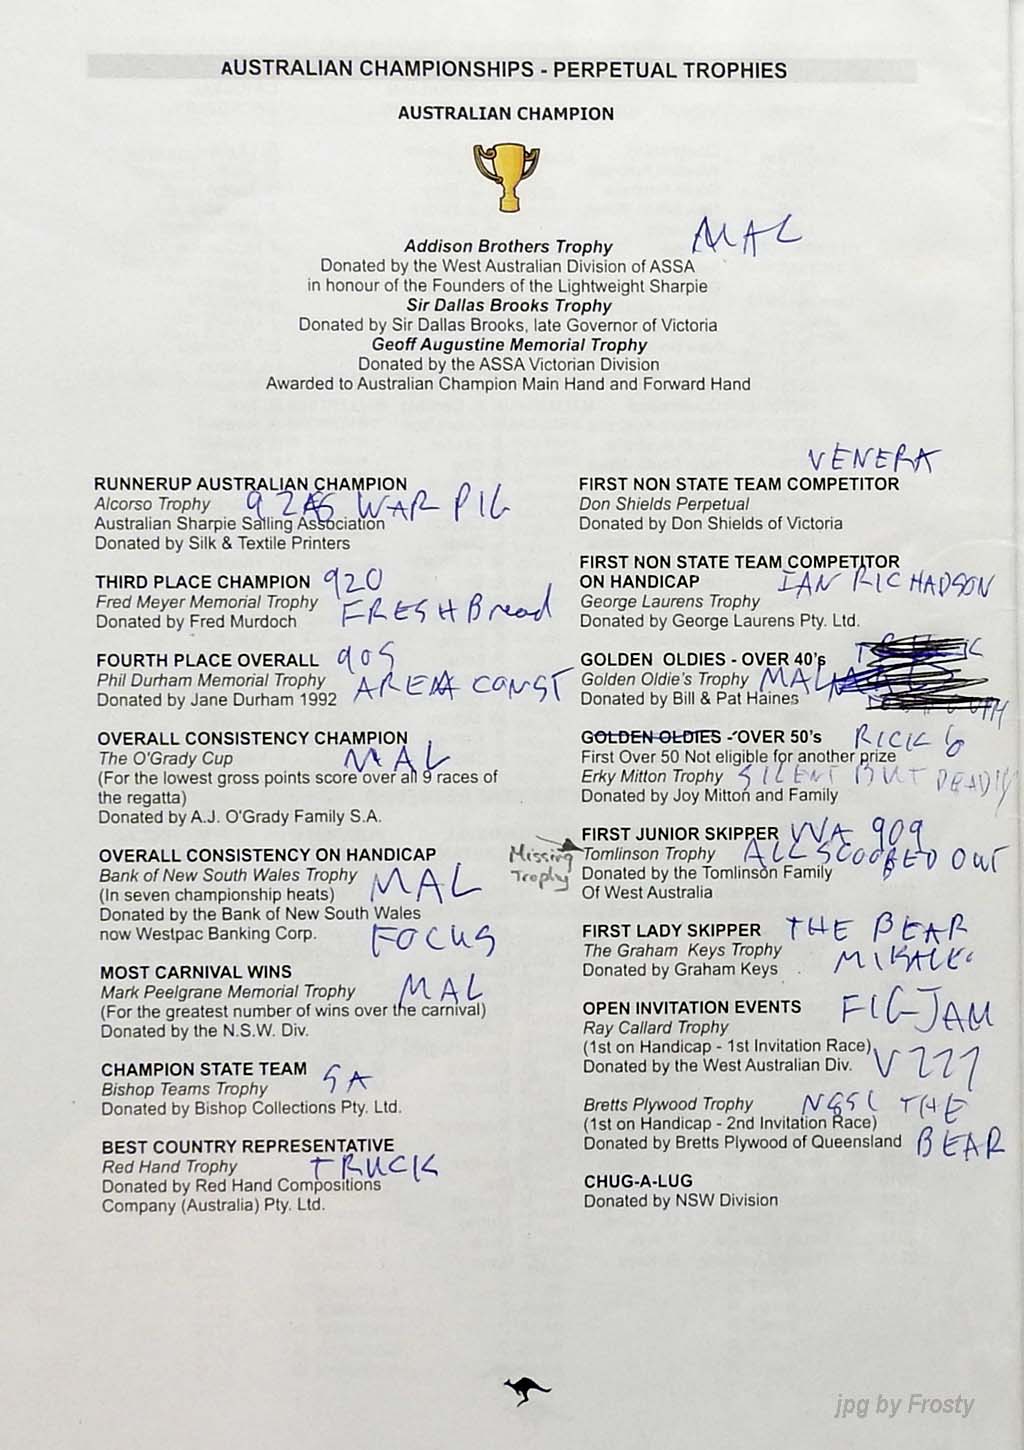 AUSTRALIAN CHAMPIONSHIPS - PERPETUAL TROPHIES
AUSTRALIAN CHAMPION
MAL
Addison Brothers Trophy
Donated by the West Australian Division of ASSA
in honour of the Founders of the Lightweight Sharpie
Sir Dallas Brooks Trophy
Donated by Sir Dallas Brooks, late Governor of Victoria
Geoff Augustine Memorial Trophy
Donated by the ASSA Victorian Division
Awarded to Australian Champion Main Hand and Forward Hand
RUNNERUP AUSTRALIAN CHAMPION
Alcorso Trophy WAR PIG
Australian Sharpie Sailing Association
Donated by Silk & Textile Printers
THIRD PLACE CHAMPION 920
Fred Meyer Memorial Trophy FRESH Bread
Donated by Fred Murdoch
FOURTH PLACE OVERALL 905
Phil Durham Memorial Trophy AREA CONST
Donated by Jane Durham 1992
OVERALL CONSISTENCY CHAMPION
The O'Grady Cup MAL
(For the lowest gross points score over all 9 races of
the regatta)
Donated by A.J. O'Grady Family S.A.
OVERALL CONSISTENCY ON HANDICAP
Bank of New South Wales Trophy MAL
(In seven championship heats)
Donated by the Bank of New South Wales
now Westpac Banking Corp. FOCUS
MOST CARNIVAL WINS
Mark Peelgrane Memorial Trophy MAL
(For the greatest number of wins over the carnival)
Donated by the N.S.W. Div.
CHAMPION STATE TEAM SA
Bishop Teams Trophy
Donated by Bishop Collections Pty. Ltd.
BEST COUNTRY REPRESENTATIVE
Red Hand Trophy TRUCK
Donated by Red Hand Compositions
Company (Australia) Pty. Ltd.
VENERA
FIRST NON STATE TEAM COMPETITOR
Don Shields Perpetual
Donated by Don Shields of Victoria
FIRST NON STATE TEAM COMPETITOR
ON HANDICAP IAN RICHADSON
George Laurens Trophy
Donated by George Laurens Pty. Ltd.
GOLDEN OLDIES - OVER 40's
Golden Oldie's Trophy MAL
Donated by Bill & Pat Haines
GOLDEN OLDIES - OVER 50's RICK G
First Over 50 Not eligible for another prize
Erky Mitton Trophy SILENT BUT DEADLY
Donated by Joy Mitton and Family
FIRST JUNIOR SKIPPER WA 909
Missing Trophy
Tomlinson Trophy ALL SCOOBED OUT
Donated by the Tomlinson Family
Of West Australia
FIRST LADY SKIPPER THE BEAR
The Graham Keys Trophy
Donated by Graham Keys
OPEN INVITATION EVENTS FIGJAM
Ray Callard Trophy
(1st on Handicap - 1st Invitation Race)
Donated by the West Australian Div. V 777
Bretts Plywood Trophy THE
(1st on Handicap - 2nd Invitation Race)
Donated by Bretts Plywood of Queensland BEAR
CHUG-A-LUG
Donated by NSW Division
jpg by Frosty